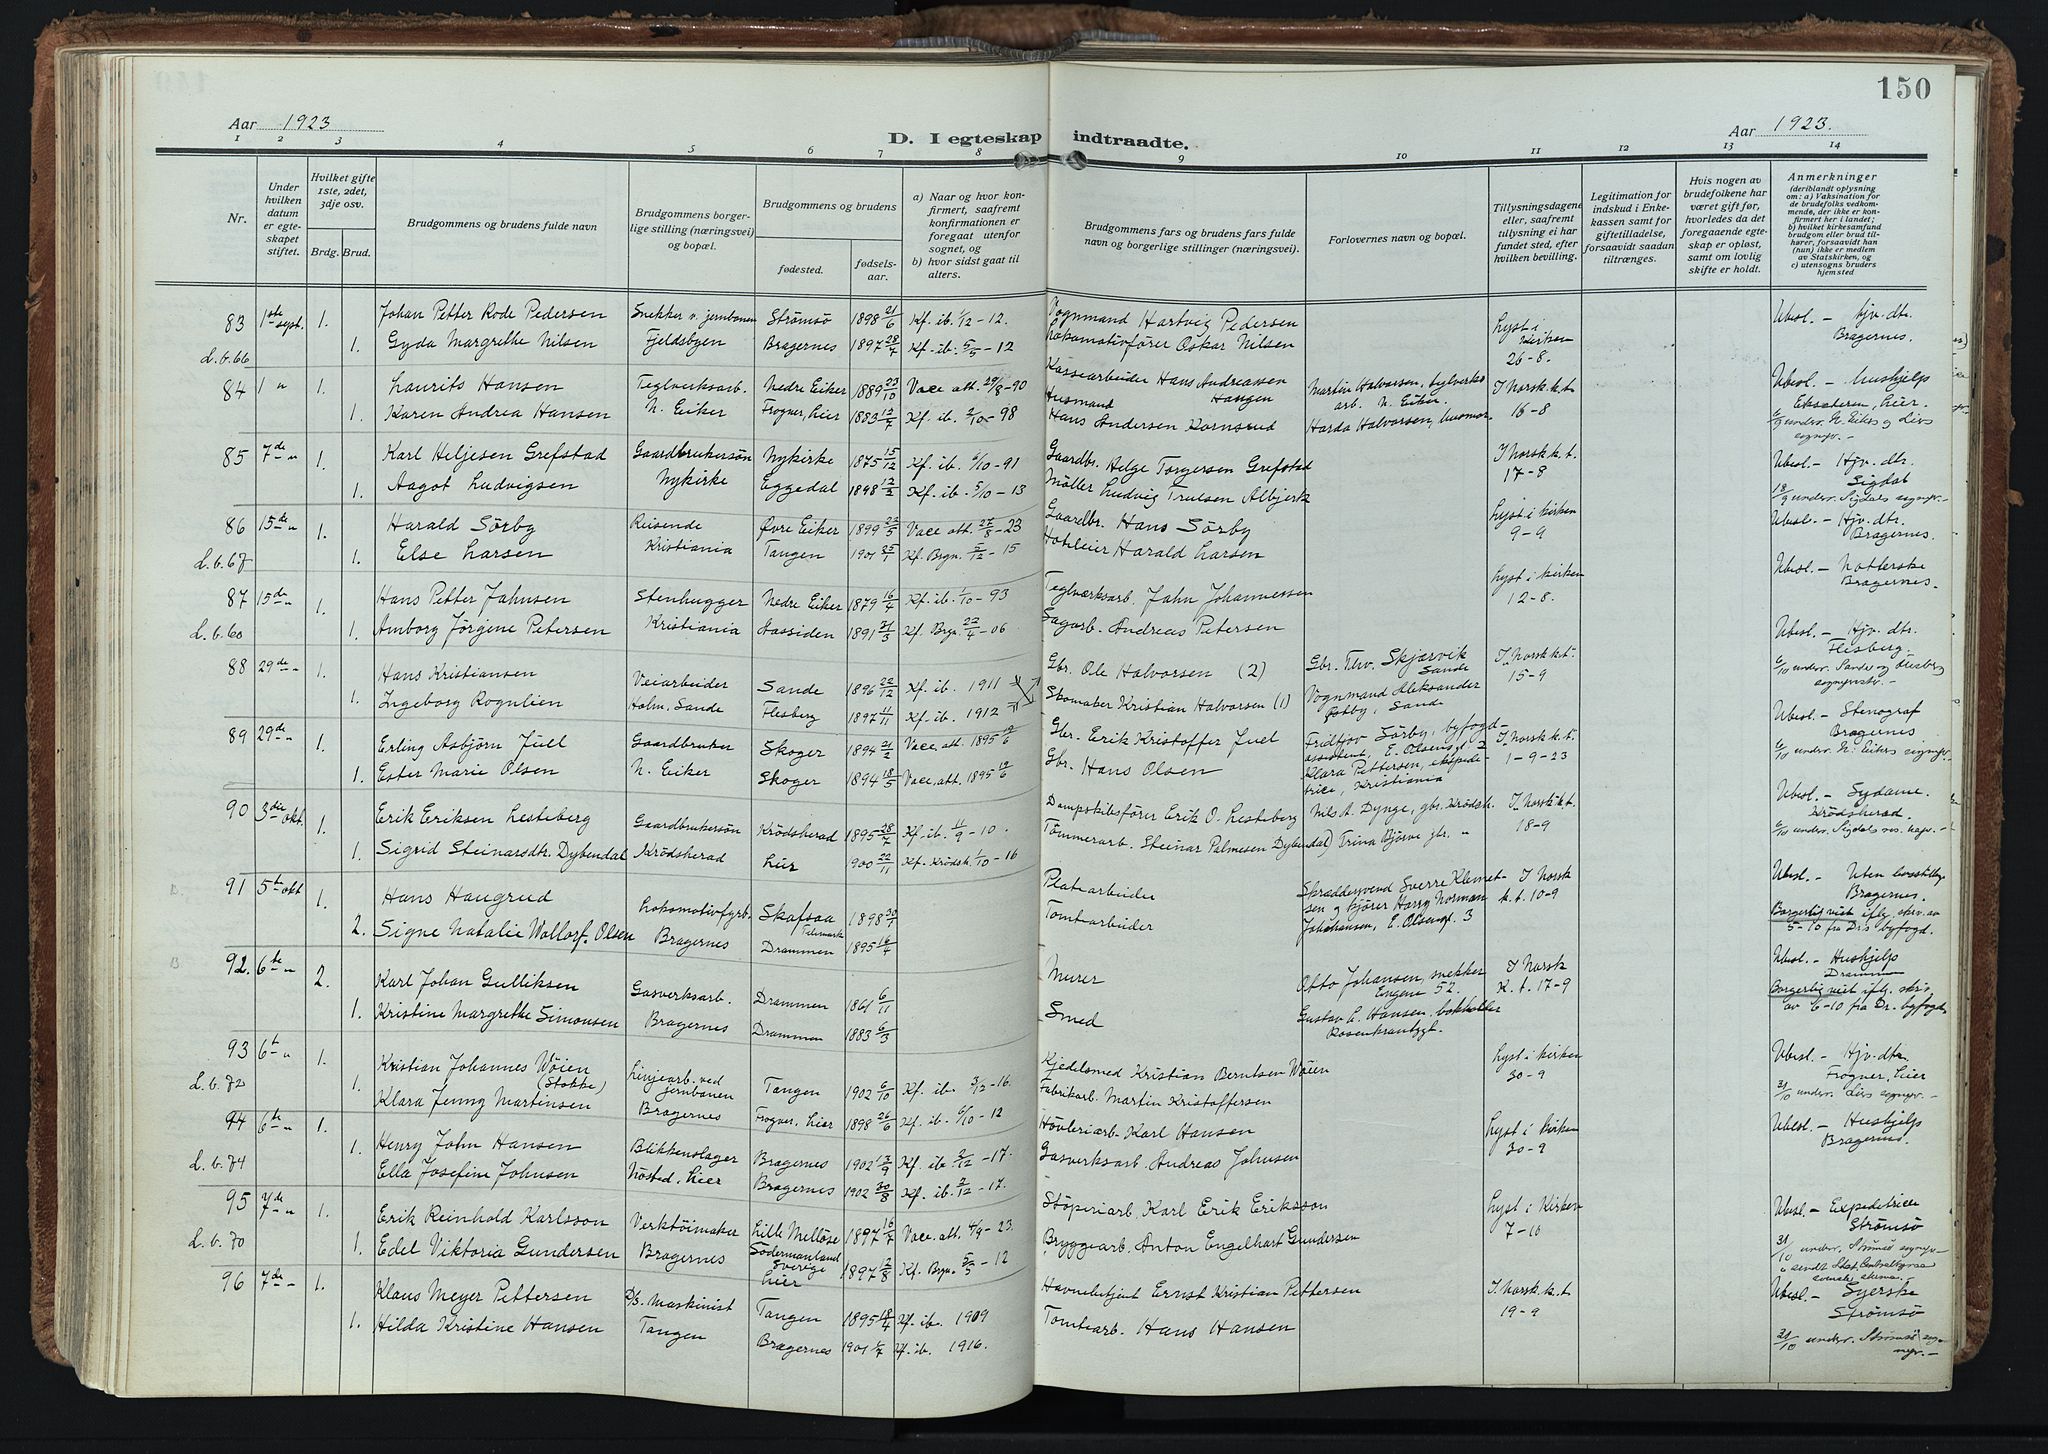 150
Aar 1923
D. I egteskap indtraadte.
Aar 1923.
1 2 3 4 5 6 7 8 9 10 11 12 13 14
Nr.
Under hvilken datum er egteskapet stiftet.
Hvilket gifte 1ste, 2det, 3dje osv.
Brdg. Brud.
Brudgommens og brudens fulde navn
Brudgommens borgerlige stilling (næringsvei) og bopæl.
Brudgommens og brudens
fødested.
fødselsaar.
a) Naar og hvor konfirmert, saafremt konfirmationen er foregaat utenfor sognet, og
b) hvor sidst gaat til alters.
Brudgommens fars og brudens fars fulde navn og borgerlige stillinger (næringsvei).
Forlovernes navn og bopæl.
Tillysningsdagene eller, saafremt tillysning ei har fundet sted, efter hvilken bevilling.
Legitimation for indskud i Enkekassen samt for giftetilladelse, forsaavidt saadan tiltrænges.
Hvis nogen av brudefolkene har været gift før, hvorledes da det foregaaende egteskap er opløst, samt om lovlig skifte er holdt.
Anmerkninger
(deriblandt oplysning om: a) Vaksination for de brudefolks vedkommende, der ikke er konfirmert her i landet; b) hvilket kirkesamfund brudgom eller brud tilhører, forsaavidt han (hun) ikke er medlem av Statskirken, og c) utensogns bruders hjemsted
83 1ste sept. 1. Johan Petter Rode Pedersen Snekker v. jernbanen Strømsø 1898 21/6 Kf. ib. 1/12 - 12. Vognmand Hartvig Pedersen Lyst i kirken 26-8. Ubesl. - Hjv. dtr. Bragernes.
L.b. 66 1. Gyda Margrethe Nilsen Fjeldsbyen Bragernes 1897 28/4 Kf. ib. 5/5 - 12 Lokomotivfører Oskar Nilsen
84 1 " 1. Laurits Hansen Teglverksarb. Nedre Eiker 1889 23/10 Vace. att. 29/8-90 Kassearbeider Hans Andreassen Hangen Martin Halvorsen, teglverks arb. N. Eiker. I Norsk k.t. 16-8 Ubesl. - Hushjelp
1. Karen Andrea Hansen N. Eiker Frogner, Lier 1883 12/7 Kf. ib. 2/10 - 98 Husmand Hans Andersen Kornsrud Harda Halvorsen, husmor Lier. 6/9 underr. N. Eikers og Liers sognepr. -
85 7de " 1. Karl Heljesen Grefstad Gaardbrukersøn Nykirke 1875 15/12 Kf. ib. 6/10 - 91 Gaardbr. Helge Torgersen Grefstad I Norsk k.t. 17-8 Ubesl. - Hjv. dtr. Sigdal
1. Aagot Ludvigsen Nykirke Eggedal 1898 12/2 Kf. ib. 5/10 - 13 Møller Ludvig Trulsen Albjerk 18/9 underr. Sigdals sognepr. -
86 15de " 1. Harald Sörby Reisende Øvre Eiker 1899 22/5 Vace. att. 27/8 - 23 Gaardbr. Hans Sörby Lyst i kirken 9-9 Ubesl. - Hjv. dtr. Bragernes.
L.b. 67 1. Else Larsen Kristiania Tangen 1901 25/7 Kf. Bragn. 5/12 - 15 Hoteleier Harald Larsen
87 15de " 1. Hans Petter Jahnsen Stenhugger Nedre Eiker 1879 16/4 Kf. ib. 1/10 - 93 Teglværksarb. Jahn Johannessen Lyst i kirken 12-8. Ubesl. - Bragernes.
L.b. 60 1. Amborg Jørgine Petersen Kristiania Aassiden 1891 31/3 Kf. Bragn. 22/4 - 06 Sagarb. Andreas Petersen
88 29de " 1. Hans Kristiansen Veiarbeider Sande 1896 22/12 Kf. ib. 1911 Gbr. Ole Halvorsen (2) Gbr. Thv. Skjærvik Sande I Norsk k.t. 15-9 Ubesl. - Hjv. dtr. Flesberg -
1. Ingeborg Rognlien Holm, Sande Flesberg 1897 11/11 Kf. ib. 1912 Skomaker Kristian Halvorsen (1) Vognmand Aleksander Østby, Sande 6/10 underr. Sande og Flesberg sogneprstr. -
89 29de " 1. Erling Asbjörn Juel Gaardbruker Skoger 1894 21/2 Vace. att. 1895 19/6 Gbr. Erik Kristoffer Juel Fridtjov Sörby, byfogdassistent, E. Olsensgt 2 I Norsk k.t. 1-9-23 Ubesl. - Stenograf Bragernes
1. Ester Marie Olsen N. Eiker Skoger 1894 18/5 Vace. att. 1895 19/6 Gbr. Hans Olsen Klara Pettersen, ekspeditrice, Kristiania 6/10 underr. N. Eikers sognepr. -
90 3die okt. 1. Erik Eriksen Lesteberg Gaardbrukersøn Krödsherad 1895 28/7 Kf. ib. 11/9 - 10. Dampskibsfører Erik O. Lesteberg Nils A. Dynge, gbr. Krødsh. I Norsk k.t. 18-9 Ubesl. - Sydame. Krødsherad.
1. Sigrid Steinarsdtr. Dybendal Krödsherad Lier 1900 22/11 Kf. Krödsh. 1/10 - 16 Tømmerarb. Steinar Palmesen Dybendal Trina Björe gbr. " 6/10 underr. Sigdals
B. 91 5t okt 1. Hans Haugrud Lokomotivfyrb. Skafsaa Telemark 1898 30/7 Platearbeider Skræddersvend Sverre Klemetsen og kjører Harry Norman I Norsk k.t. 10-9 Ubesl. - Uten livsstilling Bragernes.
2. Signe Natalie Wollorf Olsen Bragernes Drammen 1895 16/4 Tomtearbeider Johansen, E. Olsensgt. 3 Borgerlig viet iflg. skr. av 5-10 fra Drs byfogd.
B 92. 6te " 2. Karl Johan Gulliksen Gasverksarb. Drammen 1861 6/11 Murer Otto Johansen, snekker Engene 52. I Norsk k.t. 17-9 Ubesl. - Hushjelp Drammen
1. Kristine Margrethe Simonsen Bragernes Drammen 1883 6/3 Smed Gustav C. Hansen, bokholder Rosenkrantzgt. Borgerlig viet iflg. skr. av 6-10 fra Dr. byfogd.
93 6t " 1. Kristian Johannes Wöien (Stokke) Linjearb. ved jernbanen Tangen 1902 6/10 Kf. ib. 3/12 - 16. Kjedelsmed Kristian Berntsen Wöien Lyst i kirken 30-9 Ubesl. - Hjv. dtr. Frogner, Lier
L.b. 72 1. Klara Jenny Martinsen Bragernes Frogner, Lier 1898 26/6 Kf. ib. 6/10 - 12 Fabrikarb. Martin Kristoffersen 31/10 underr. Liers sognepr. -
94 6te " 1. Henry John Hansen Blikkenslager Bragernes 1902 13/9 Kf. ib. 2/12 - 17. Høvleriarb. Karl Hansen Lyst i kirken 30-9 Ubesl. - Hushjelp Bragernes.
L.b. 74 1. Ella Josefine Johnsen Nøsted, Lier Bragernes 1902 30/8 Kf. ib. 2/12 - 17. Gasverksarb. Andreas Johnsen
95 7de " 1. Erik Reinhold Karlsson Verktøimaker Lille Mellösa Södermanland Sverige 1897 16/7 Vace. att. 4/9 - 23. Støperiarb. Karl Erik Eriksson Lyst i Kirken 7-10 Ubesl. - Expeditrice Strømsø
L.b. 70 1. Edel Viktoria Gundersen Bragernes Lier 1897 12/8 Kf. Bragn. 5/5 - 12 Bryggearb. Anton Engelhart Gundersen 31/10 underr. Strømsø sognepr. " sendt Stat. Centralbyraa svensk skema.
96 7de - 1. Klaus Meyer Pettersen D/s. Maskinist Tangen 1895 18/4 Kf. ib. 1909 Havnebetjent Ernst Kristian Pettersen I Norsk k.t. 19-9 Ubesl. - Syerske Strømsø
1. Hilda Kristine Hansen Tangen Bragernes 1901 1/7 Kf. ib. 1916. Tomtearb. Hans Hansen 31/10 underr. Strømsø sognepr. -